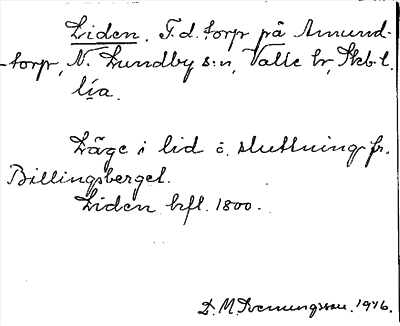 Liden. F.d. torp på Amund-
-torp, N. Lundby s:n, Valle hr, Skbl.
lía.
Läge i lid å sluttning fr.
Billingsberget.
Liden befl. 1800.
D. M. Svenungsson. 1946.